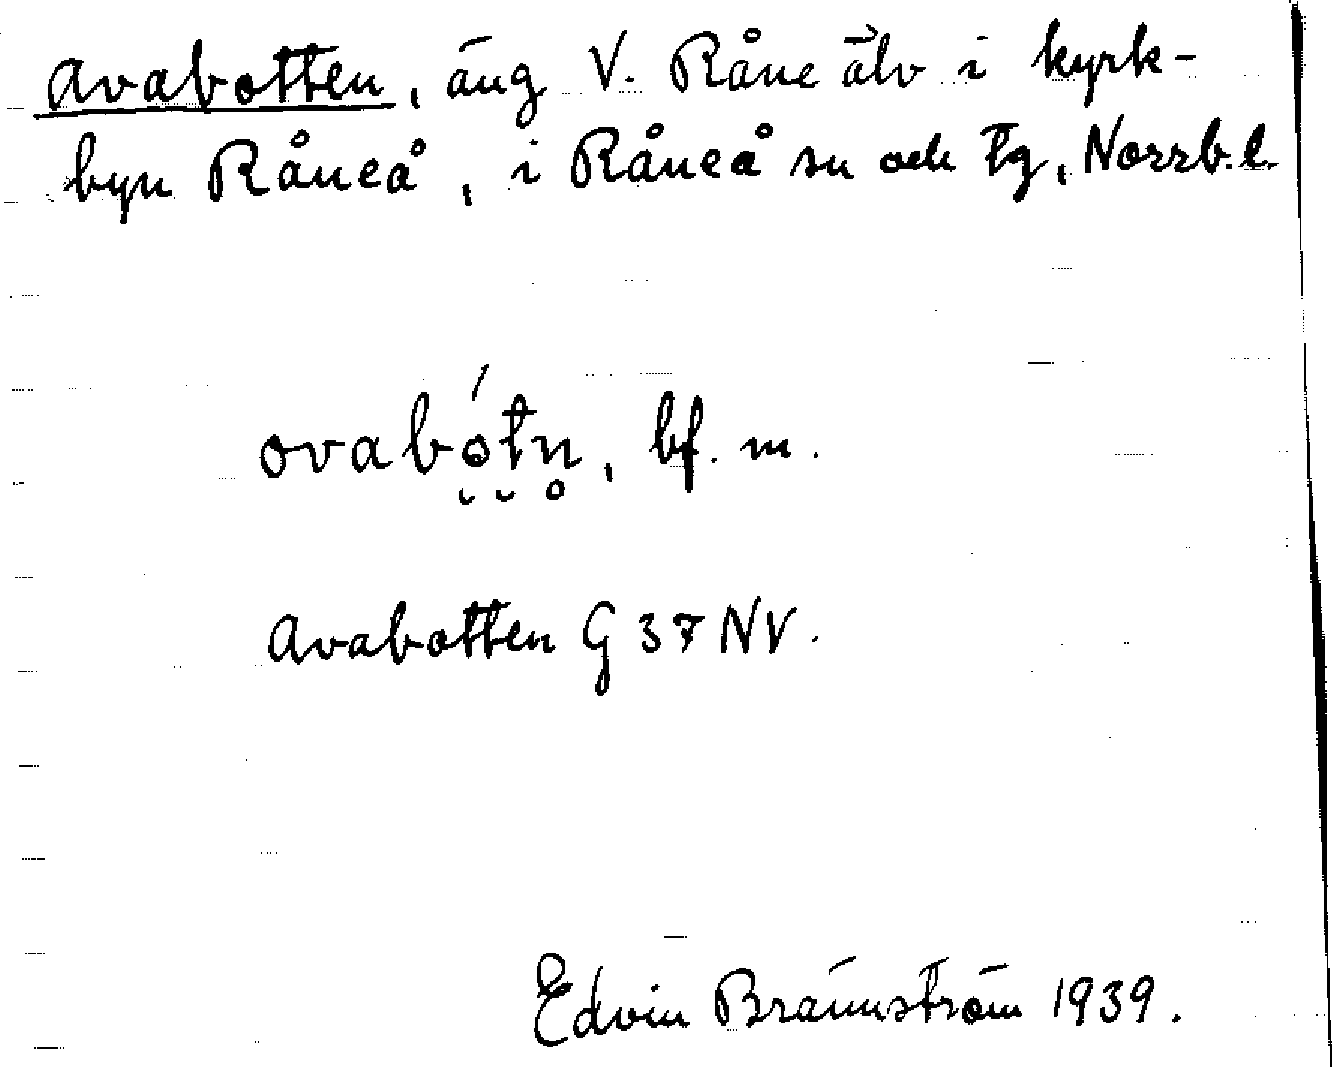 Avabotten, äng V. Råne älv i kyrk-
byn Råneå, i Råneå sn och tg, Norrb. l.
ovabó̯t̯n̥, bf. m.
Avabotten G 37 NV.
Edvin Brännström 1939.